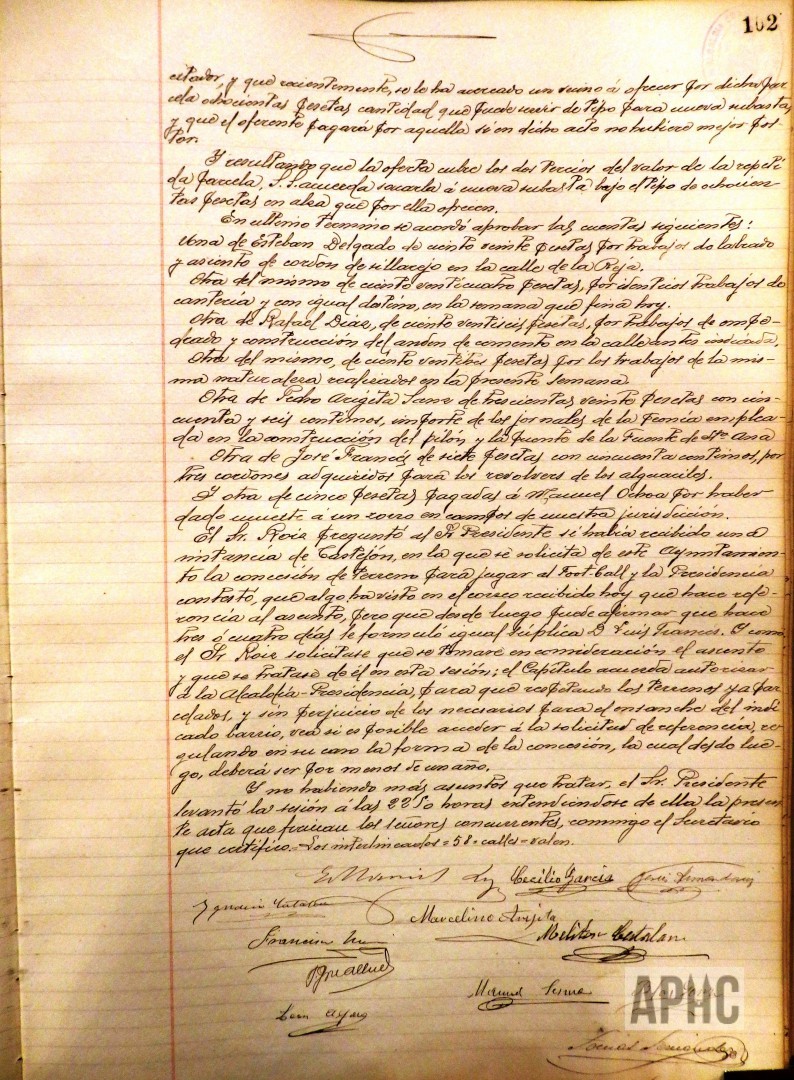 102
citador, y que recientemente, se le ha acercado un vecino á ofrecer por dicha par-
cela ochocientas pesetas cantidad que puede servir de tipo para nueva subasta,
y que el oferente pagará por aquella si en dicho acto no hubiere mejor pos-
tor.
Y resultando que la oferta cubre los dos tercios del valor de la repeti-
da parcela, S. S. acuerda sacarla á nueva subasta bajo el tipo de ochocien-
tas pesetas en alza que por ella ofrecen.
En último término se acordó aprobar las cuentas siguientes:
Una de Esteban Delgado de ciento veinte pesetas por trabajos de labrado
y asiento de cordon de sillarejo en la calle de la Reja.
Otra del mismo de ciento venticuatro pesetas, por identicos trabajos de
canteria y con igual destino, en la semana que fina hoy.
Otra de Rafael Diaz, de ciento ventiseis pesetas, por trabajos de empe-
drado y construcción del anden de cemento en la calle antes indicada.
Otra del mismo, de ciento ventitres pesetas por los trabajos de la mis-
ma naturaleza realizados en la presente semana.
Otra de Pedro Arigita Sanz de trescientas veinte pesetas con cin-
cuenta y seis centimos, importe de los jornales de la peonía emplea-
da en la construcción del pilón y la puente de la Fuente de Sta Ana
Otra de José Francés de siete pesetas con cincuenta centimos, por
tres cordones adquiridos para los revolvers de los alguaciles.
Y otra de cinco pesetas pagadas á Manuel Ochoa por haber
dado muerte á un zorro en campos de nuestra jurisdicción.
El Sr. Roiz preguntó al Sr Presidente si había recibido una
instancia de Castejón, en la que se solicita de este Ayuntamien-
to la concesión de terreno para jugar al Foot-Ball y la Presidencia
contestó, que algo ha visto en el correo recibido hoy que hace refe-
rencia al asunto, pero que desde luego puede afirmar que hace
tres ó cuatro días le formuló igual súplica D. Luis Francés. Y como
el Sr Roiz solicitase que se tomare en consideración el asunto
y que se tratase de él en esta sesión; el Capítulo acuerda autorizar
a la Alcaldía-Presidencia, para que respetando los terrenos ya par-
celados, y sin perjuicio de los necesarios para el ensanche del indi-
cado barrio, vea si es posible acceder á la solicitud de referencia, re-
gulando en su caso la forma de la concesión, la cual desde lue-
go, deberá ser por menos de un año.
Y no habiendo más asuntos que tratar, el Sr. Presidente
levantó la sesión á las 22'50 horas extendiéndose de ella la presen-
te acta que firman los señores concurrentes, conmigo el Secretario
que certifico.= Los interlineados = 58 = calles = valen.
Cecilio García
Marcelino Arigita
Meliton Catalan
Francisco
Manuel Sesma
APHC